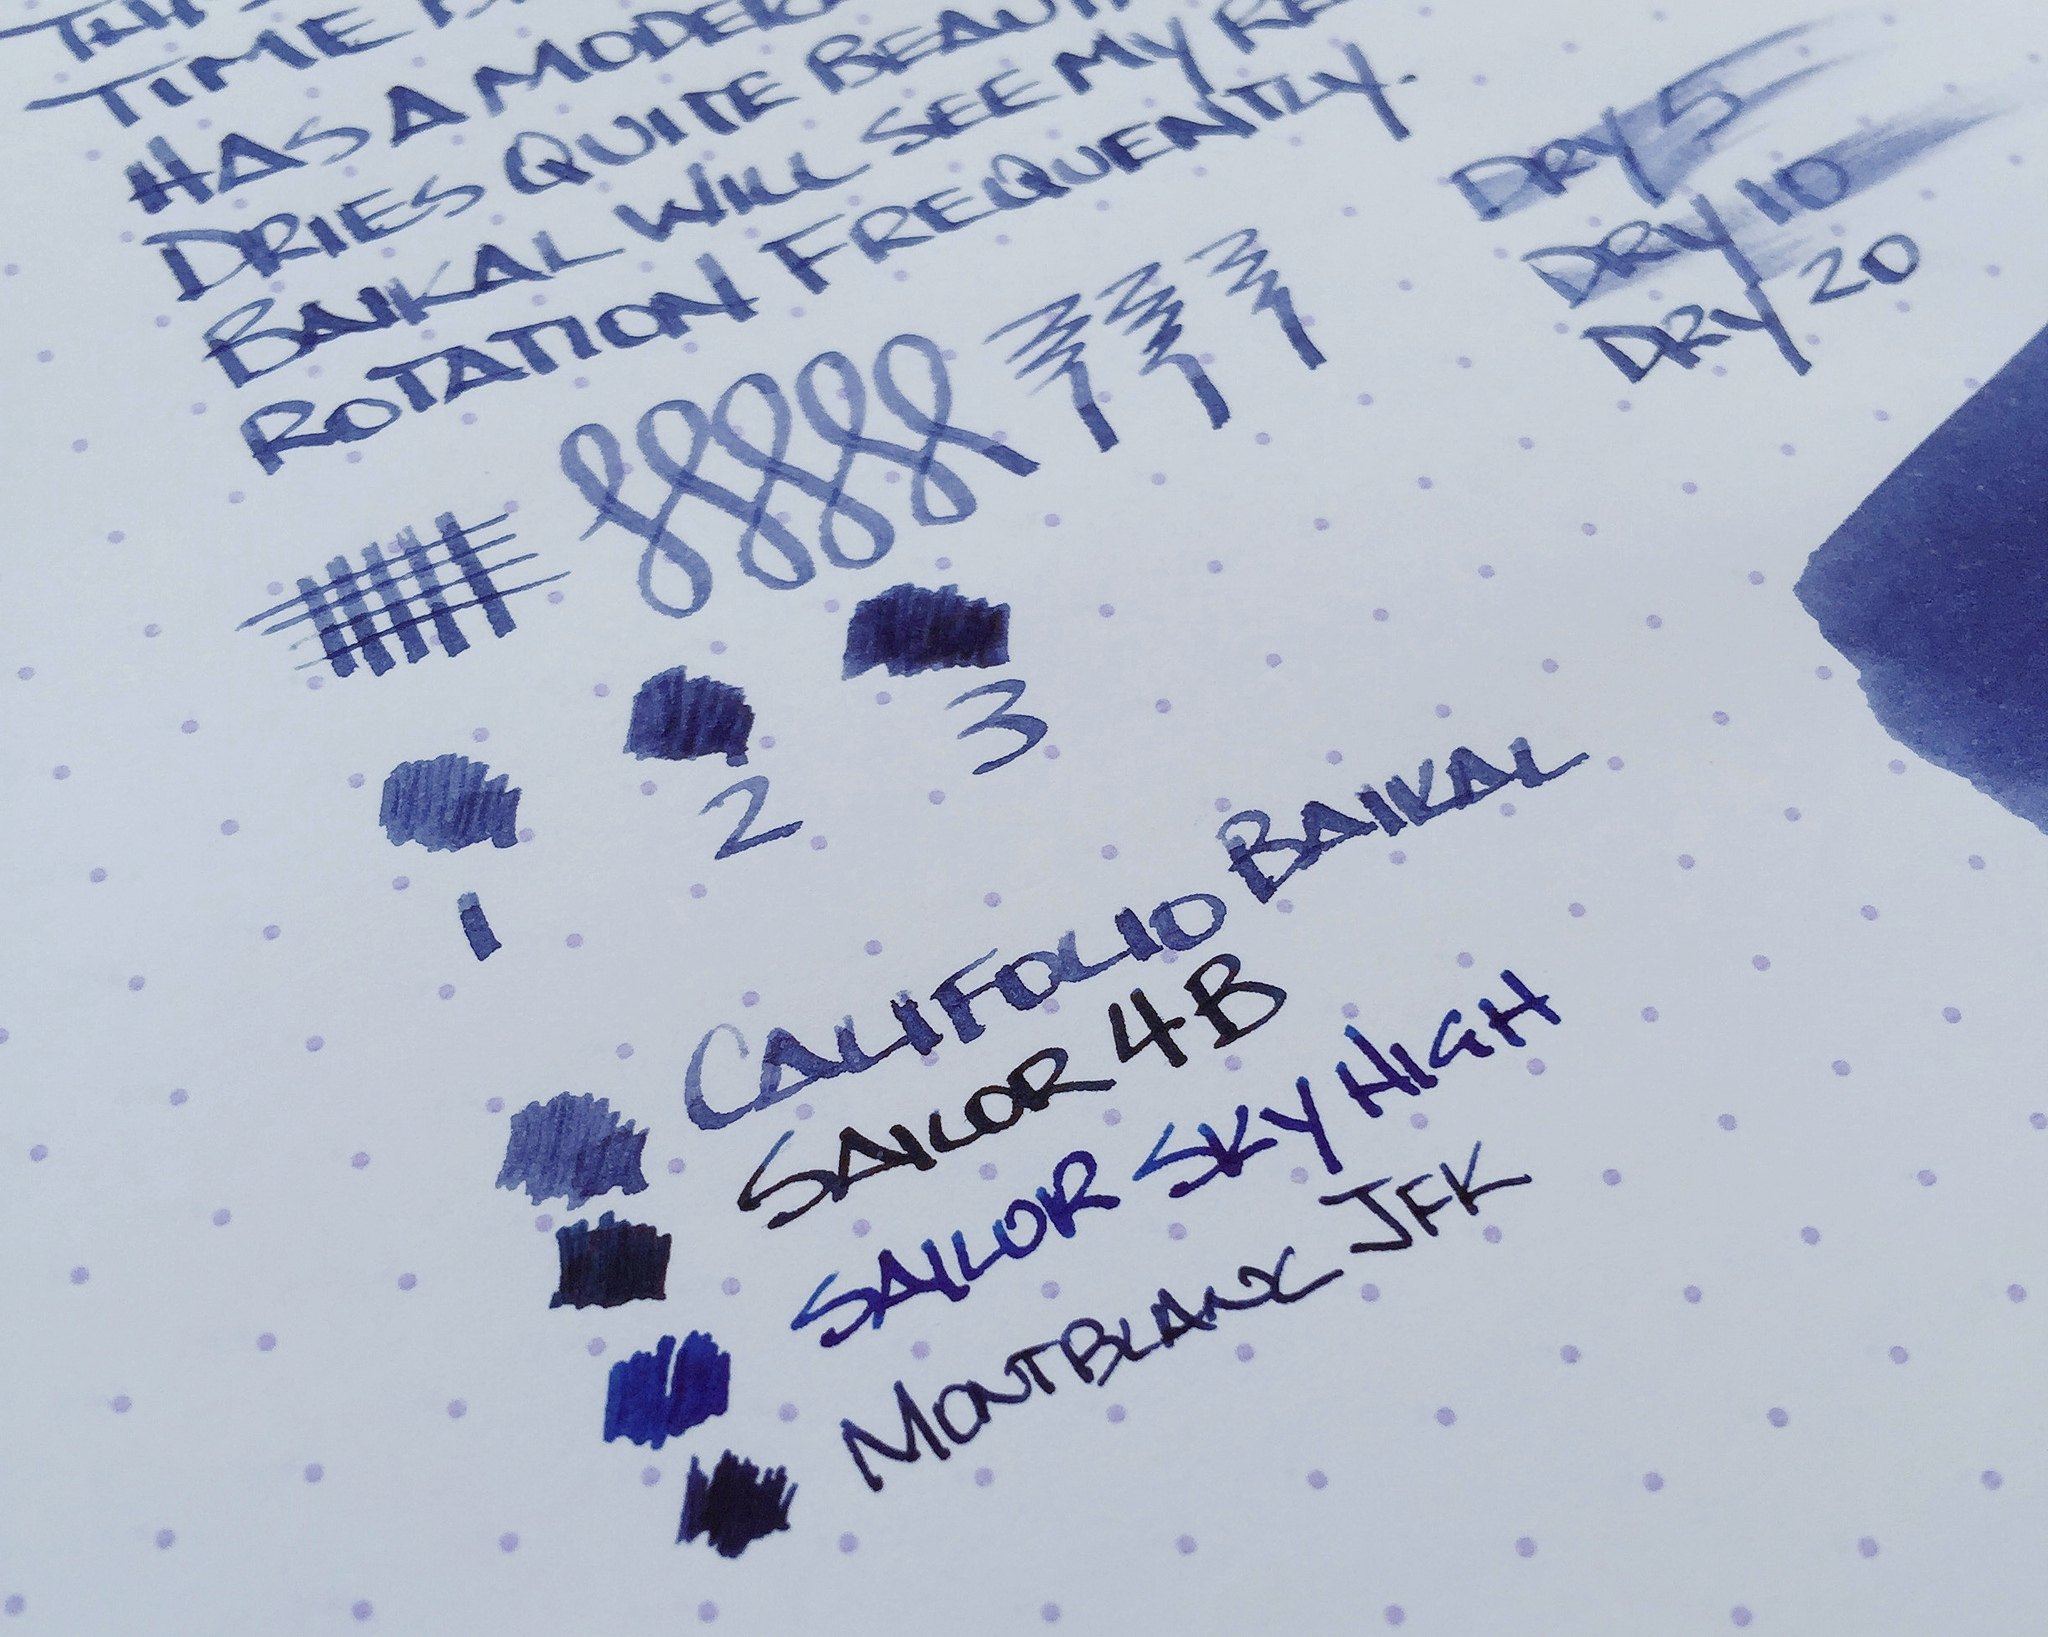 TIME
HAS A
DRIES QUITE
BAIKAL WILL SEE MY
ROTATION FREQUENTLY.
DRY 5
DRY 10
DRY 20
1
2
3
CALIFOLIO BAIKAL
SAILOR 4B
SAILOR SKY HIGH
MONTBLANC JFK